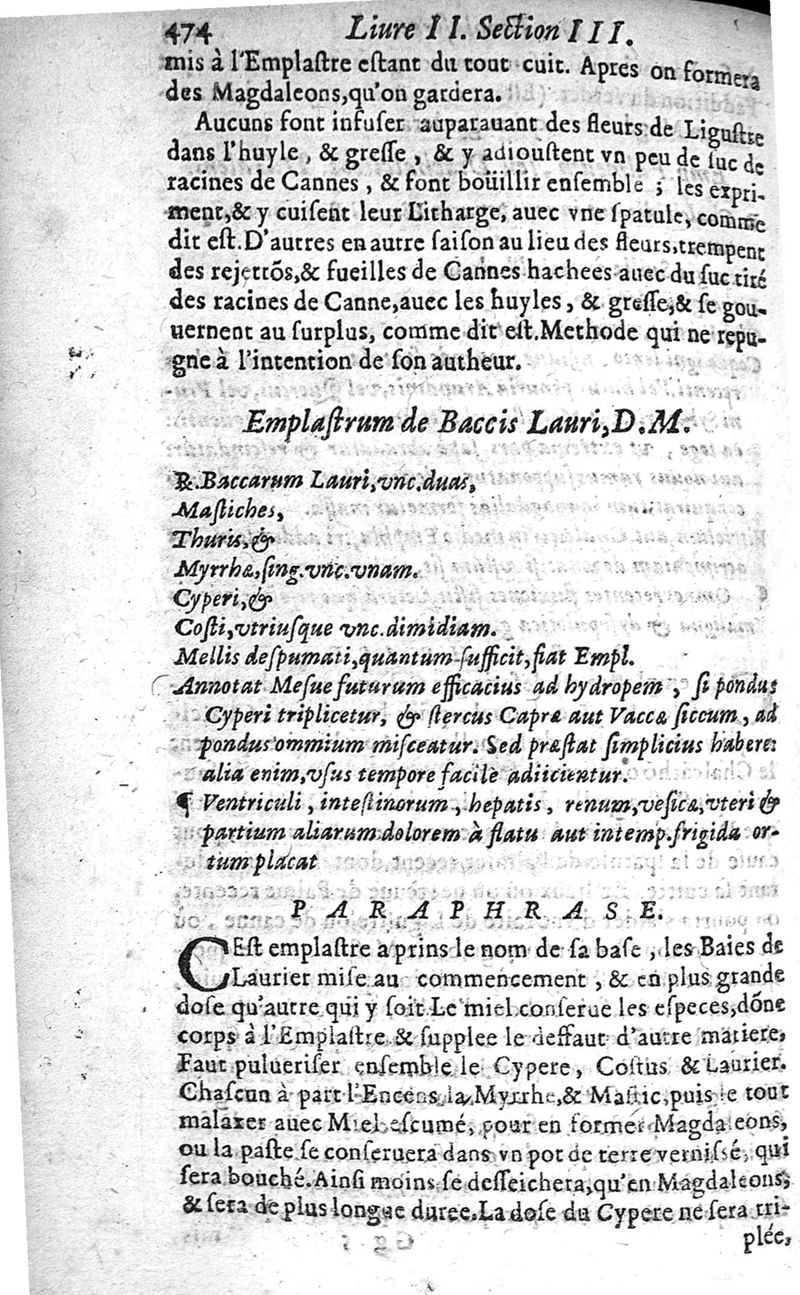 474 Liure II. Section III.
mis à l'Emplaſtre eſtant du tout cuit. Apres on formera
des Magdaleons,qu'on gardera.
Aucuns font infuſer auparauant des fleurs de Liguſtre
dans l'huyle , & greſſe , & y adiouſtent vn peu de ſuc de
racines de Cannes , & font boüillir enſemble ; les expri-
ment,& y cuiſent leur Litharge, auec vne ſpatule, comme
dit eſt.D'autres en autre ſaiſon au lieu des fleurs,trempent
des rejettõs,& fueilles de Cannes hachees auec du ſuc tiré
des racines de Canne,auec les huyles , & greſſe,& ſe gou-
uernent au ſurplus, comme dit eſt.Methode qui ne repu-
gne à l'intention de ſon autheur.
Emplaſtrum de Baccis Lauri,D.M.
℞.Baccarum Lauri,vnc.duas,
Maſtiches,
Thuris,&
Myrrhæ,ſing.vnc.vnam.
Cyperi,&
Coſti,vtriuſque vnc.dimidiam.
Mellis deſpumati,quantum ſufficit,fiat Empl.
Annotat Meſue futurum efficacius ad hydropem , ſi pondus
Cyperi triplicetur, & ſtercus Capræ aut Vaccæ ſiccum , ad
pondus ommium miſceatur. Sed præſtat ſimplicius habere:
alia enim,vſus tempore facilè adiicientur.
¶ Ventriculi , inteſtinorum , hepatis , renum,veſicæ,vteri &
partium aliarum dolorem à flatu aut intemp.frigida or-
tum placat
PARAPHRASE.
CEſt emplaſtre a prins le nom de ſa baſe , les Baies de
Laurier miſe au commencement , & en plus grande
doſe qu'autre qui y ſoit.Le miel conſerue les eſpeces,dõne
corps à l'Emplaſtre & ſupplee le deffaut d'autre matiere,
Faut pulueriſer enſemble le Cypere , Coſtus & Laurier.
Chaſcun à part l'Encens,la Myrrhe,& Maſtic,puis le tout
malaxer auec Miel eſcumé, pour en former Magdaleons,
ou la paſte ſe conſeruera dans vn pot de terre verniſſé, qui
ſera bouché.Ainſi moins ſe deſſeichera,qu'en Magdaleons,
& ſera de plus longue duree.La doſe du Cypere ne ſera tri-
plée,